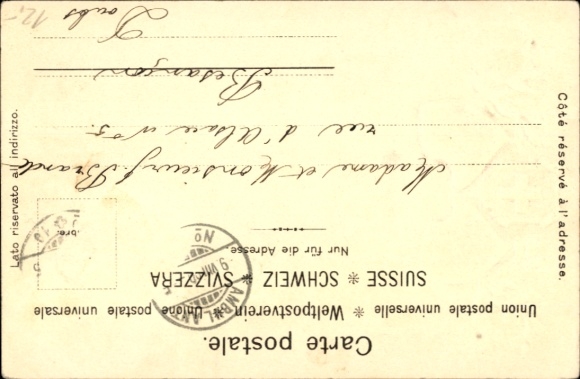 Carte postale.
Union postale universelle ✳ Weltpostverein ✳ Unione postale universale
SUISSE ✳ SCHWEIZ ✳ SVIZZERA
Nur für die Adresse.
AMBULANT
No
9.VII
Côté réservé à l'adresse.
Lato riservato all indirizzo.
Madame et Monsieur J. Brand
rue d'Alsace no 5.
Besançon
Doubs
12,-